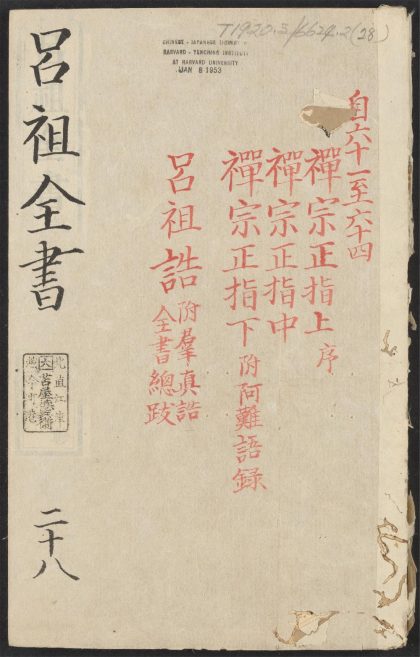 T1920.5/6624.2(28)
CHINESE - JAPANESE LIBRARY
HARVARD - YENCHING INSTITUTE
AT HARVARD UNIVERSITY
JAN 8 1953
自六十一至六十四
禪宗正指上 序
禪宗正指中
禪宗正指下 附阿難語錄
呂祖誥 附羣真誥
全書總跋
呂祖全書
二十八